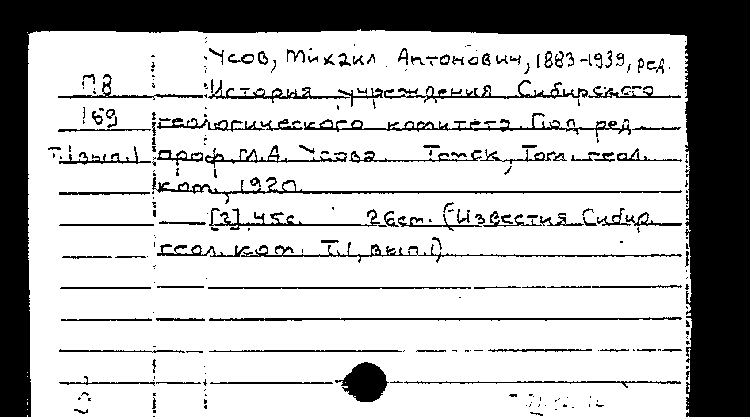 Усов, Михаил Антонович, 1883-1939, ред.
П8 История учреждения Сибирского
169 геологического комитета. Под ред.
Т.1 вып.1 проф. М.А. Усова. Томск, Том. геол.
ком., 1920.
[2], 45с. 26см. (Известия Сибир.
геол. ком. Т.1, вып.1)